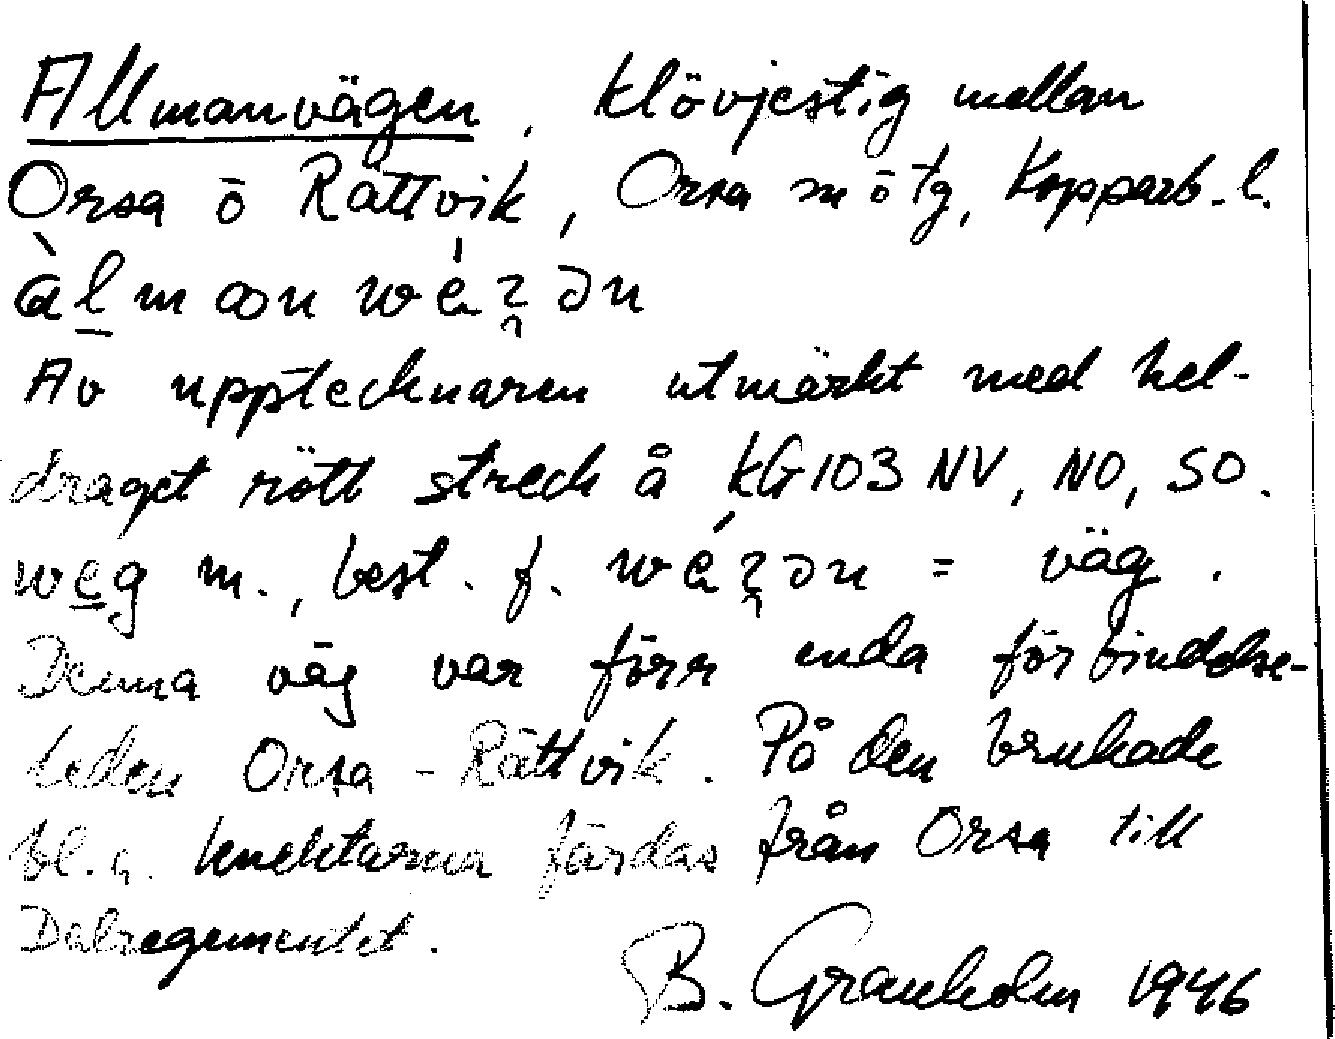 Allmanvägen, klövjestig mellan
Orsa o Rättvik, Orsa sn o tg, Kopparb. l.
àlmaɷn wéɜ̨ən
Av upptecknaren utmärkt med hel-
draget rött streck å KG103 NV, NO, SO.
weg m., best. f. wéɜ̨ən = väg.
Denna väg var förr enda förbindelse-
leden Orsa - Rättvik. På den brukade
bl. a. knektarna färdas från Orsa till
Dalregementet.
B. Granholm 1946